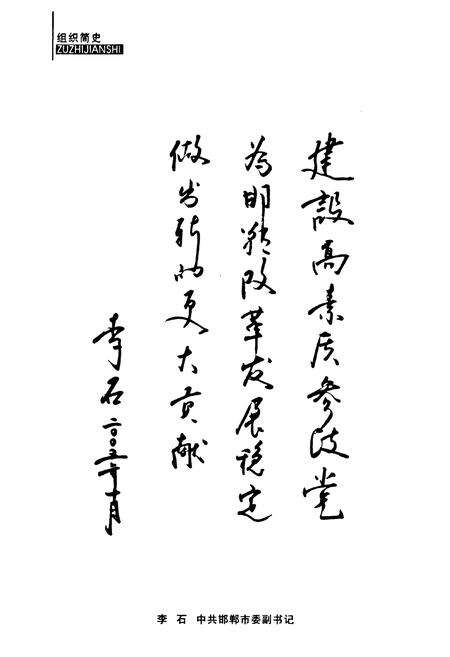 组织简史
ZUZHIJIANSHI
建設高素质参政党
为邯郸改革发展稳定
做出新的更大贡献
李石 二〇〇五年十月
李 石 中共邯郸市委副书记